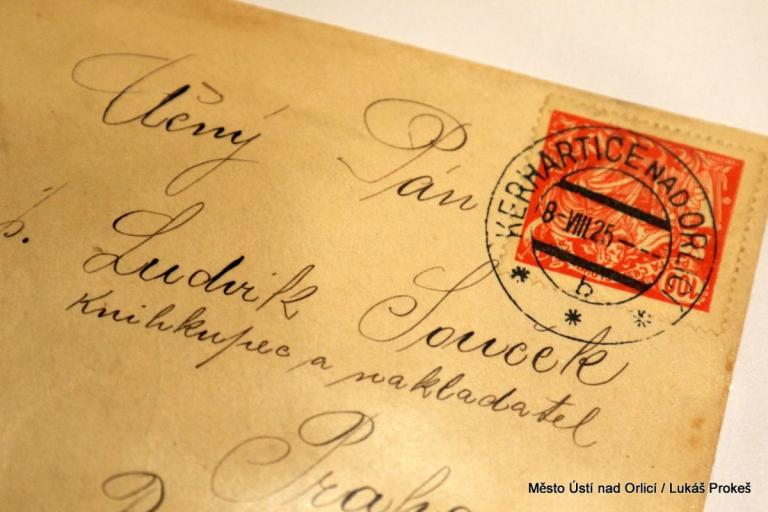 Učený Pán
p. Ludvík Souček
Knihkupec a nakladatel
Praha
KERHARTICE NAD ORLICÍ
8-VIII.25-
b
Město Ústí nad Orlicí / Lukáš Prokeš